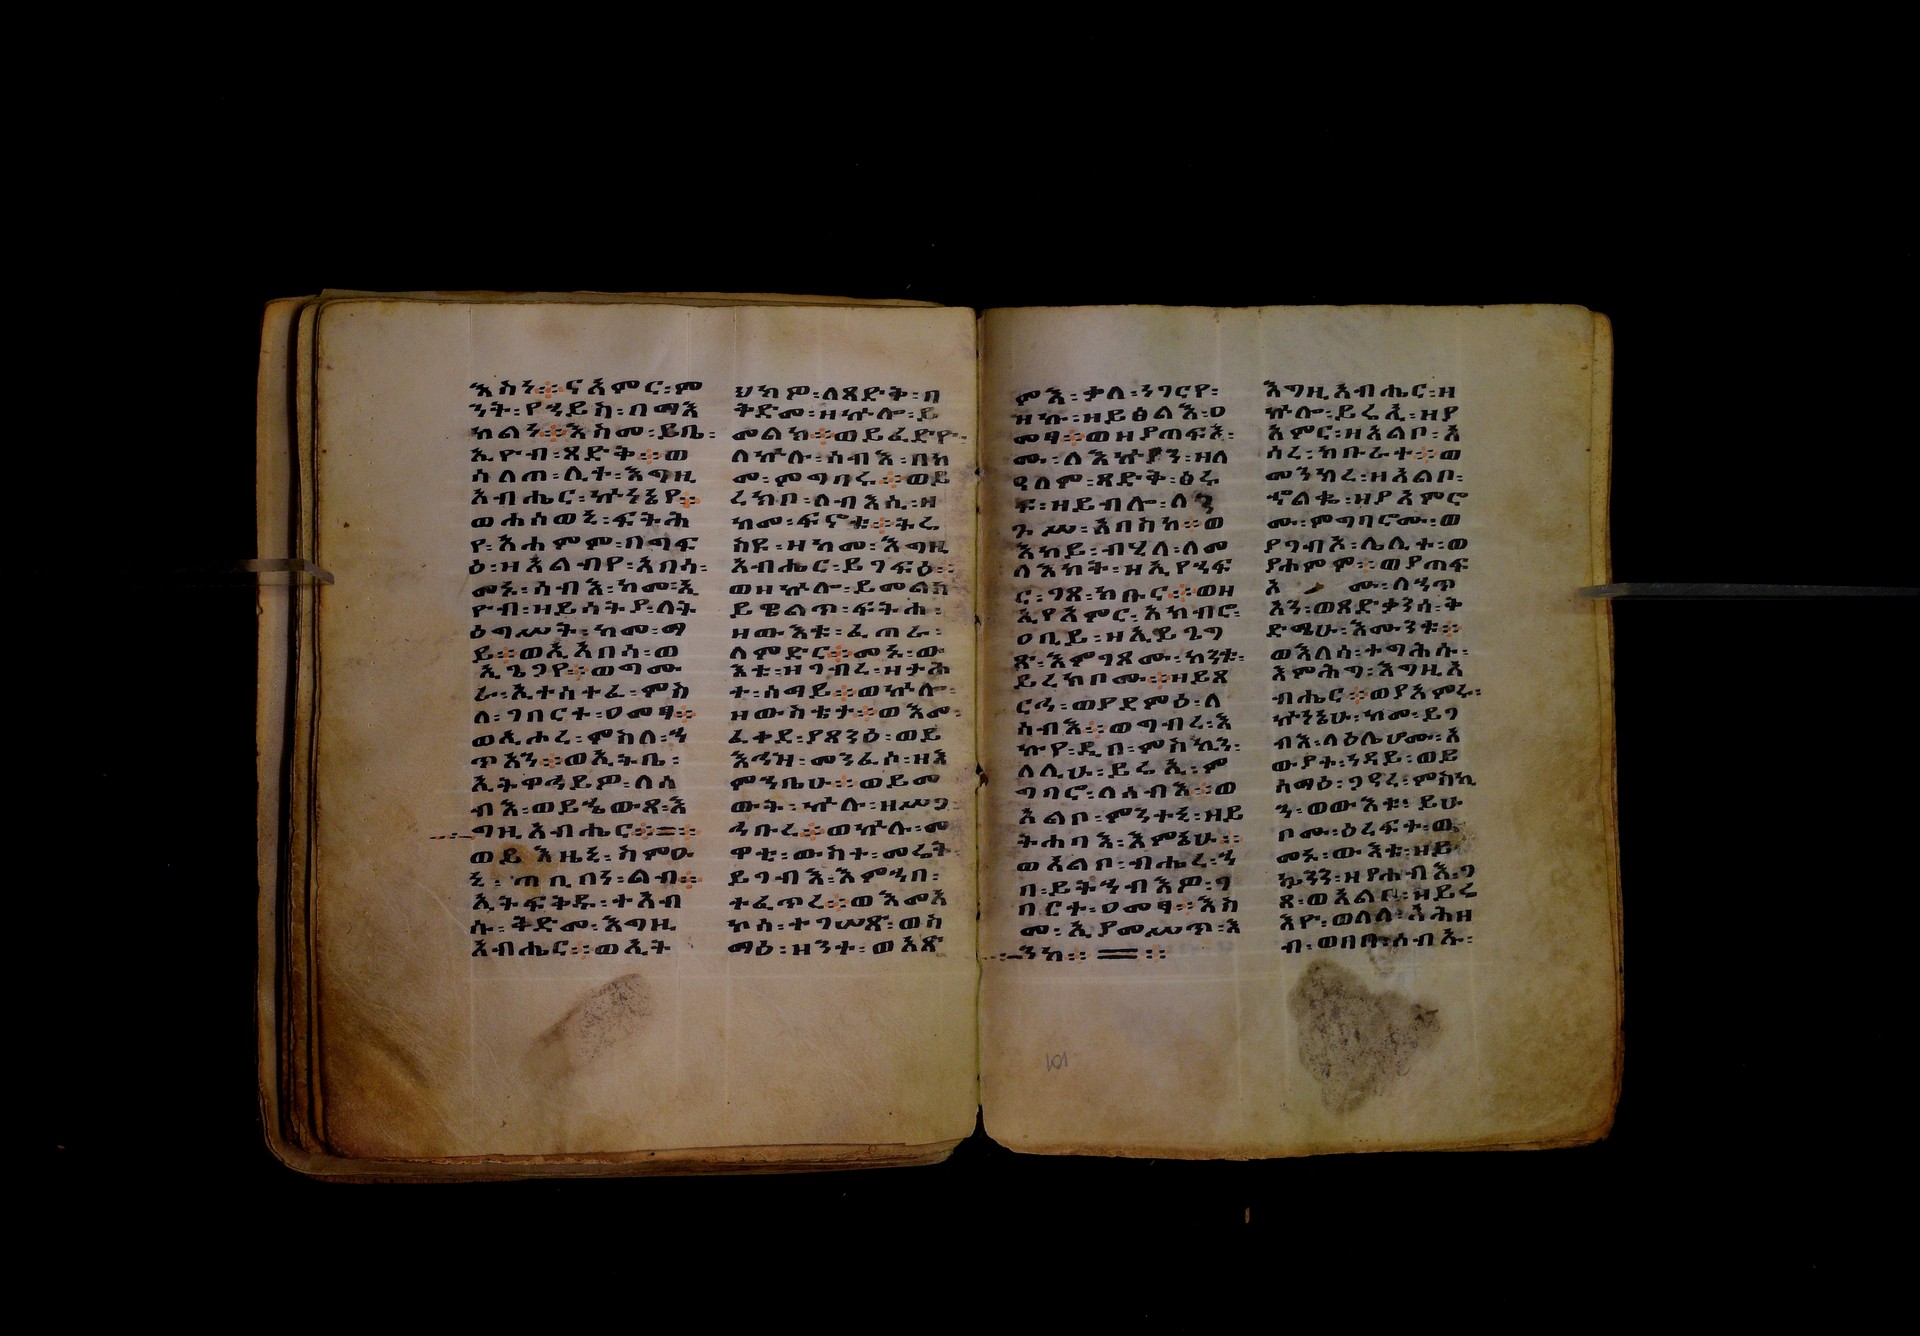 እስነ፡፡ናእምር፡ም
ንት፡የኀይስ፡በማእ
ከልነ፡፡እስመ፡ይቤ፡
ኢዮብ፡ጻድቅ፡፡ወ
ሰለጠ፡ሊት፡እግዚ
አብሔር፡ኵነኔየ፡፡
ወሐሰወኒ፡ፍትሕ
የ፡አሐምም፡በግፍ
ዕ፡ዘአልብየ፡አበሳ፡
መኑ፡ሰብእ፡ከመ፡ኢ
ዮብ፡ዘይሳትያ፡ለት
ዕግሥት፡ከመ፡ማ
ይ፡፡ወኢአበሳ፡ወ
ኢጌጋየ፡፡ወግሙ
ራ፡ኢተሳተፈ፡ምስ
ለ፡ገበርተ፡ዐመፃ፡፡
ወኢሖረ፡ምስለ፡ኃ
ጥአን፡፡ወኢትቤ፡
ኢትዋኅይዎ፡ለሰ
ብእ፡ወይኄውጾ፡እ
ግዚአብሔር፡፡
ወይእዜኒ፡ስምዑ
ኒ፡ጠቢበነ፡ልብ፡፡
ኢትፍቅዱ፡ተአብ
ሱ፡ቅድመ፡እግዚ
አብሔር፡፡ወኢት
ህክዎ፡ለጻድቅ፡በ
ቅድመ፡ዘኵሎ፡ይ
መልክ፡፡ወይፈድዮ፡
ለኵሉ፡ሰብእ፡በከ
መ፡ምግባሩ፡፡ወይ
ረክቦ፡ለብእሲ፡በ
ከመ፡ፍኖቱ፡፡ትሬ
እዩ፡ዘከመ፡እግዚ
አብሔር፡ይገፍዕ፡፡
ወዘኵሎ፡ይመልክ
ይዌልጥ፡ፍትሐ፡
ዘውእቱ፡ፈጠራ፡
ለምድር፡፡መኑ፡ው
እቱ፡ዘገብረ፡ዘታሕ
ተ፡ሰማይ፡፡ወኵሎ፡
ዘውስቴታ፡፡ወእመ፡
ፈቀደ፡ያጸንዕ፡ወይ
እኅዝ፡መንፈሰ፡ዘእ
ምኀቤሁ፡፡ወይመ
ውት፡ኵሉ፡ዘሥጋ፡
ኅቡረ፡፡ወኵሉ፡መ
ዋቲ፡ውስተ፡መሬት፡
ይገብእ፡እምኀበ፡
ተፈጥረ፡፡ወእመአ
ኮሰ፡ተገሠጽ፡ወስ
ማዕ፡ዘንተ፡ወአጽ
ምእ፡ቃለ፡ነገርየ፡
ዘኒ፡ዘይፀልእ፡ዐ
መፃ፡፡ወዘያጠፍእ፡
ሙ፡ለእኵያን፡ዘለ
ዓለም፡ጻድቅ፡ፅሩ
ፍ፡ዘይብሎ፡ለን
ጉሥ፡አበስከ፡፡ወ
እከይ፡ብሂለ፡ለመ
ለእክት፡ዘኢየኀፍ
ር፡ገጸ፡ክቡር፡፡ወዘ
ኢየአምር፡አክብሮ፡
ዐቢይ፡ዘኢይጌግ
ጽ፡እምገጾሙ፡ከንቱ፡
ይረክቦሙ፡፡ዘይጸ
ርኅ፡ወያደምዕ፡ለ
ሰብእ፡፡ወግብረ፡እ
ኩየ፡ዲበ፡ምስኪን፡
ለሊሁ፡ይሬኢ፡ም
ግባሮ፡ለሰብእ፡፡ወ
አልቦ፡ምንተኒ፡ዘይ
ትኀባእ፡እምኔሁ፡፡
ወአልቦ፡ብሔረ፡ኀ
በ፡ይትኀብእዎ፡ገ
በርተ፡ዐመፃ፡፡እስ
መ፡ኢያመሥጥ፡እ
ንከ፡፡
እግዚአብሔር፡ዘ
ኵሎ፡ይሬኢ፡ዘያ
አምር፡ዘአልቦ፡አ
ሰረ፡ክቡራተ፡፡ወ
መንክረ፡ዘአልቦ፡
ኆልቈ፡ዘያአምሮ
ሙ፡ምግባሮሙ፡ወ
ያገብእ፡ሌሊተ፡ወ
ያሐምም፡፡ወያጠፍ
ሙ፡ለኀጥ
አን፡ወጻድቃንሰ፡ቅ
ድሜሁ፡እሙንቱ፡፡
ወእለሰ፡ተግሕሡ፡
እምሕግ፡እግዚአ
ብሔር፡፡ወያአምሩ፡
ኵነኔሁ፡ከመ፡ይገ
ብእ፡ላዕሌሆሙ፡አ
ውያተ፡ነዳይ፡ወይ
ሰማዕ፡ገዓረ፡ምስኪ
ን፡ወውእቱ፡ይሁ
ቦሙ፡ዕረፍተ፡ወ
መኑ፡ውእቱ፡ዘይ
ኴንን፡ዘየሐብእ፡ገ
ጸ፡ወአልቦ፡ዘይሬ
እዮ፡ወለለ፡አሕዘ
ብ፡ወበበ፡ሰብኡ፡
101